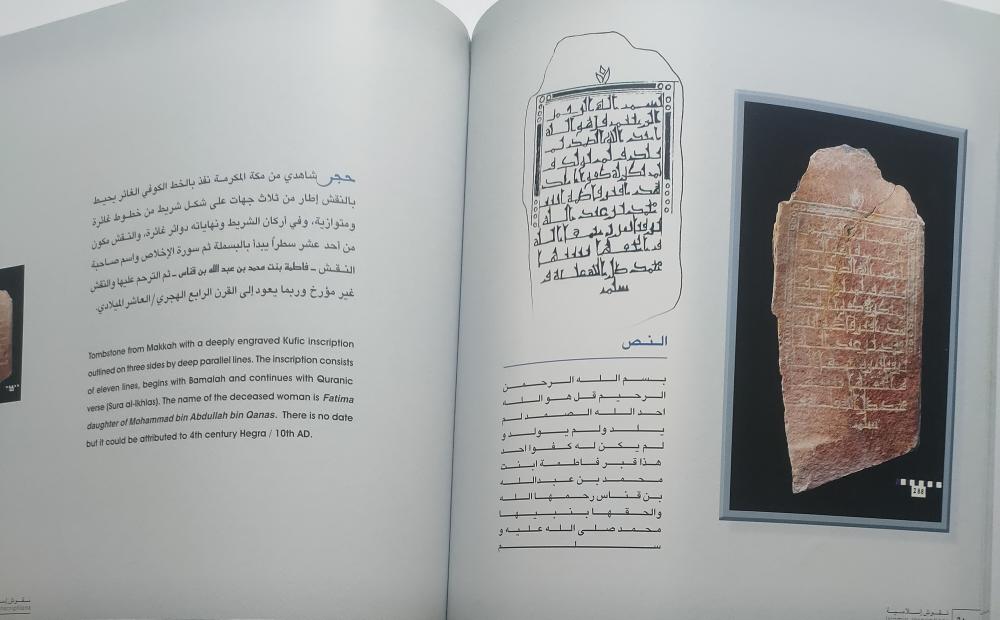 حجر شاهدي من مكة المكرمة نفذ بالخط الكوفي الغائر يحيط
بالنقش إطار من ثلاث جهات على شكل شريط من خطوط غائرة
ومتوازية، وفي أركان الشريط ونهاياته دوائر غائرة، والنقش مكون
من أحد عشر سطراً يبدأ بالبسملة ثم سورة الإخلاص واسم صاحبة
النقش ـ فاطمة بنت محمد بن عبد الله بن قناس ـ ثم الترحم عليها والنقش
غير مؤرخ وربما يعود إلى القرن الرابع الهجري/العاشر الميلادي.
Tombstone from Makkah with a deeply engraved Kufic inscription
outlined on three sides by deep parallel lines. The inscription consists
of eleven lines, begins with Bamalah and continues with Quranic
verse (Sura al-Ikhlas). The name of the deceased woman is Fatima
daughter of Mohammad bin Abdullah bin Qanas. There is no date
but it could be attributed to 4th century Hegra / 10th AD.
النص
بسم الله الرحمن
الرحيم قل هو الله
احد الله الصمد لم
يلد ولم يولد و
لم يكن له كفوا احد
هذا قبر فاطمة ابنت
محمد بن عبدالله
بن قناس رحمها الله
والحقها بنبيها
محمد صلى الله عليه و
سلم
288
نقوش إسلامية